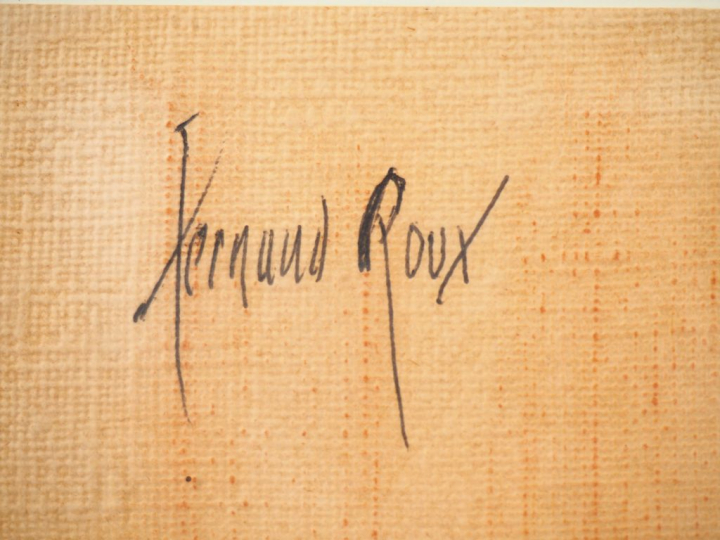 Fernand Roux